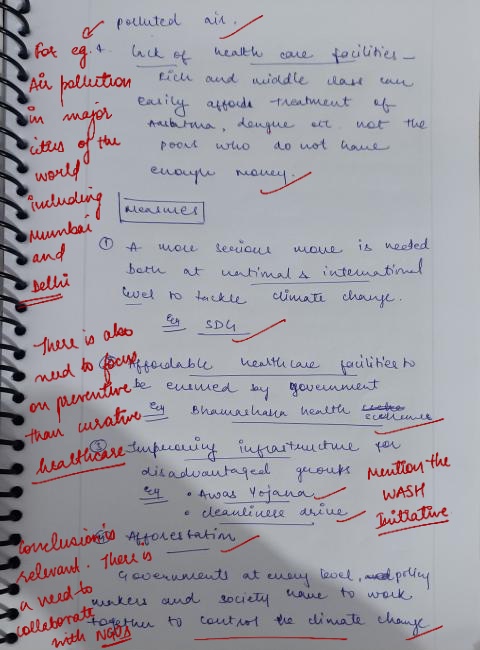 polluted air.
For eg.
Air pollution
in major
cities of the
world
including
Mumbai
and
Delhi
4. lack of health care facilities –
Rich and middle class can
easily afford treatment of
Asthma, dengue etc. not the
poors who do not have
enough money.
Measures
① A more serious move is needed
both at national & international
level to tackle climate change.
Eg SDG
There is also
need to focus
on preventive
than curative
healthcare
② Affordable healthcare facilities to
be ensured by government
Eg Bhamashaha health scheme
③ Improving infrastructure for
disadvantaged groups
Eg • Awas Yojana
• cleanliness drive
Mention the
WASH
Initiative
④ Afforestation
Conclusion is
relevant. There is
a need to
collaborate
with NGOs
Governments at every level, policy
makers and society have to work
together to control the climate change